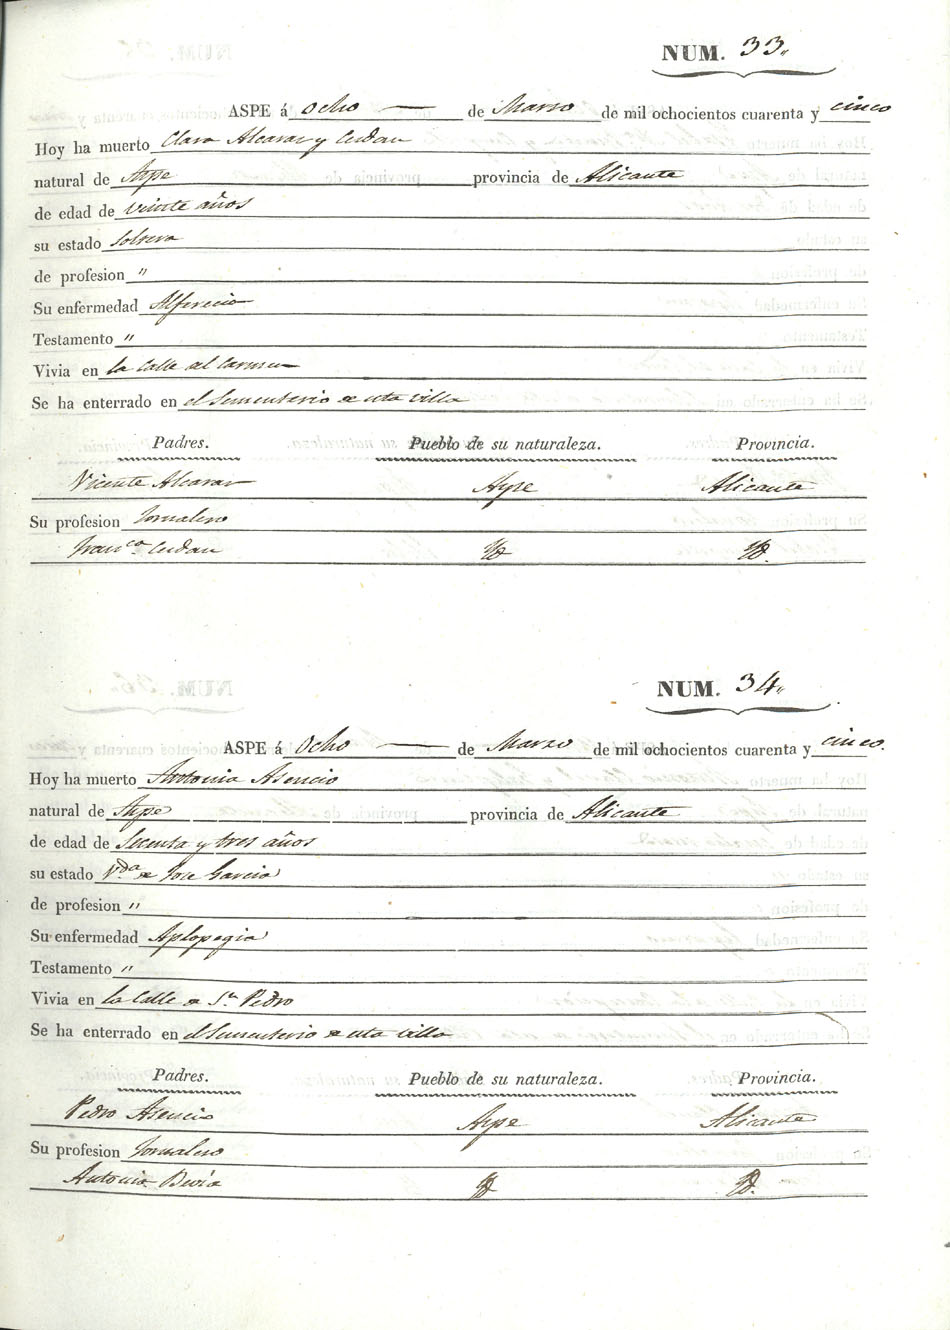 NUM. 33.
ASPE á ocho de Marzo de mil ochocientos cuarenta y cinco
Hoy ha muerto Clara Alcaraz y Cerdan
natural de Aspe provincia de Alicante
de edad de veinte años
su estado soltera
de profesion "
Su enfermedad Alferecia
Testamento "
Vivia en la Calle del Carmen
Se ha enterrado en el Sementerio de esta villa
Padres. Pueblo de su naturaleza. Provincia.
Vicente Alcaraz Aspe Alicante
Su profesion Jornalero
Franca. Cerdan Yd Yd.
NUM. 34.
ASPE á Ocho de Marzo de mil ochocientos cuarenta y cinco.
Hoy ha muerto Antonia Asencio
natural de Aspe provincia de Alicante
de edad de Secenta y tres años
su estado Vda. de Jose Garcia
de profesion "
Su enfermedad Aplopegia
Testamento "
Vivia en la Calle de Sn. Pedro
Se ha enterrado en el Sementerio de esta villa
Padres. Pueblo de su naturaleza. Provincia.
Pedro Asencio Aspe Alicante
Su profesion Jornalero
Antonia Bevia Yd Yd.